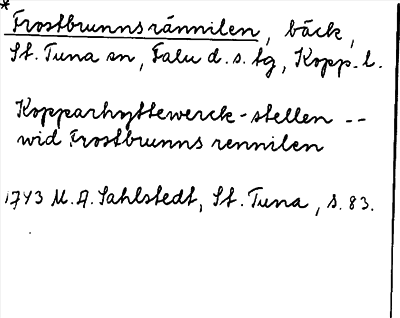 *Frostbrunnsrännilen, bäck,
St. Tuna sn, Falu d.s. tg, Kopp. l.
Kopparhyttewerck-stellen --
wid Frostbrunns rennilen
1743 M. A. Sahlstedt, St. Tuna, s. 83.